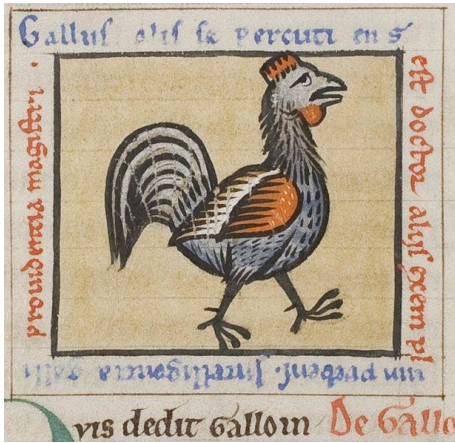 Gallus alis se percuti en s
est doctor alijs exem pl
um prebens. Intelligentia galli
prouidentia magistri .
vis dedit Gallo in De Gallo